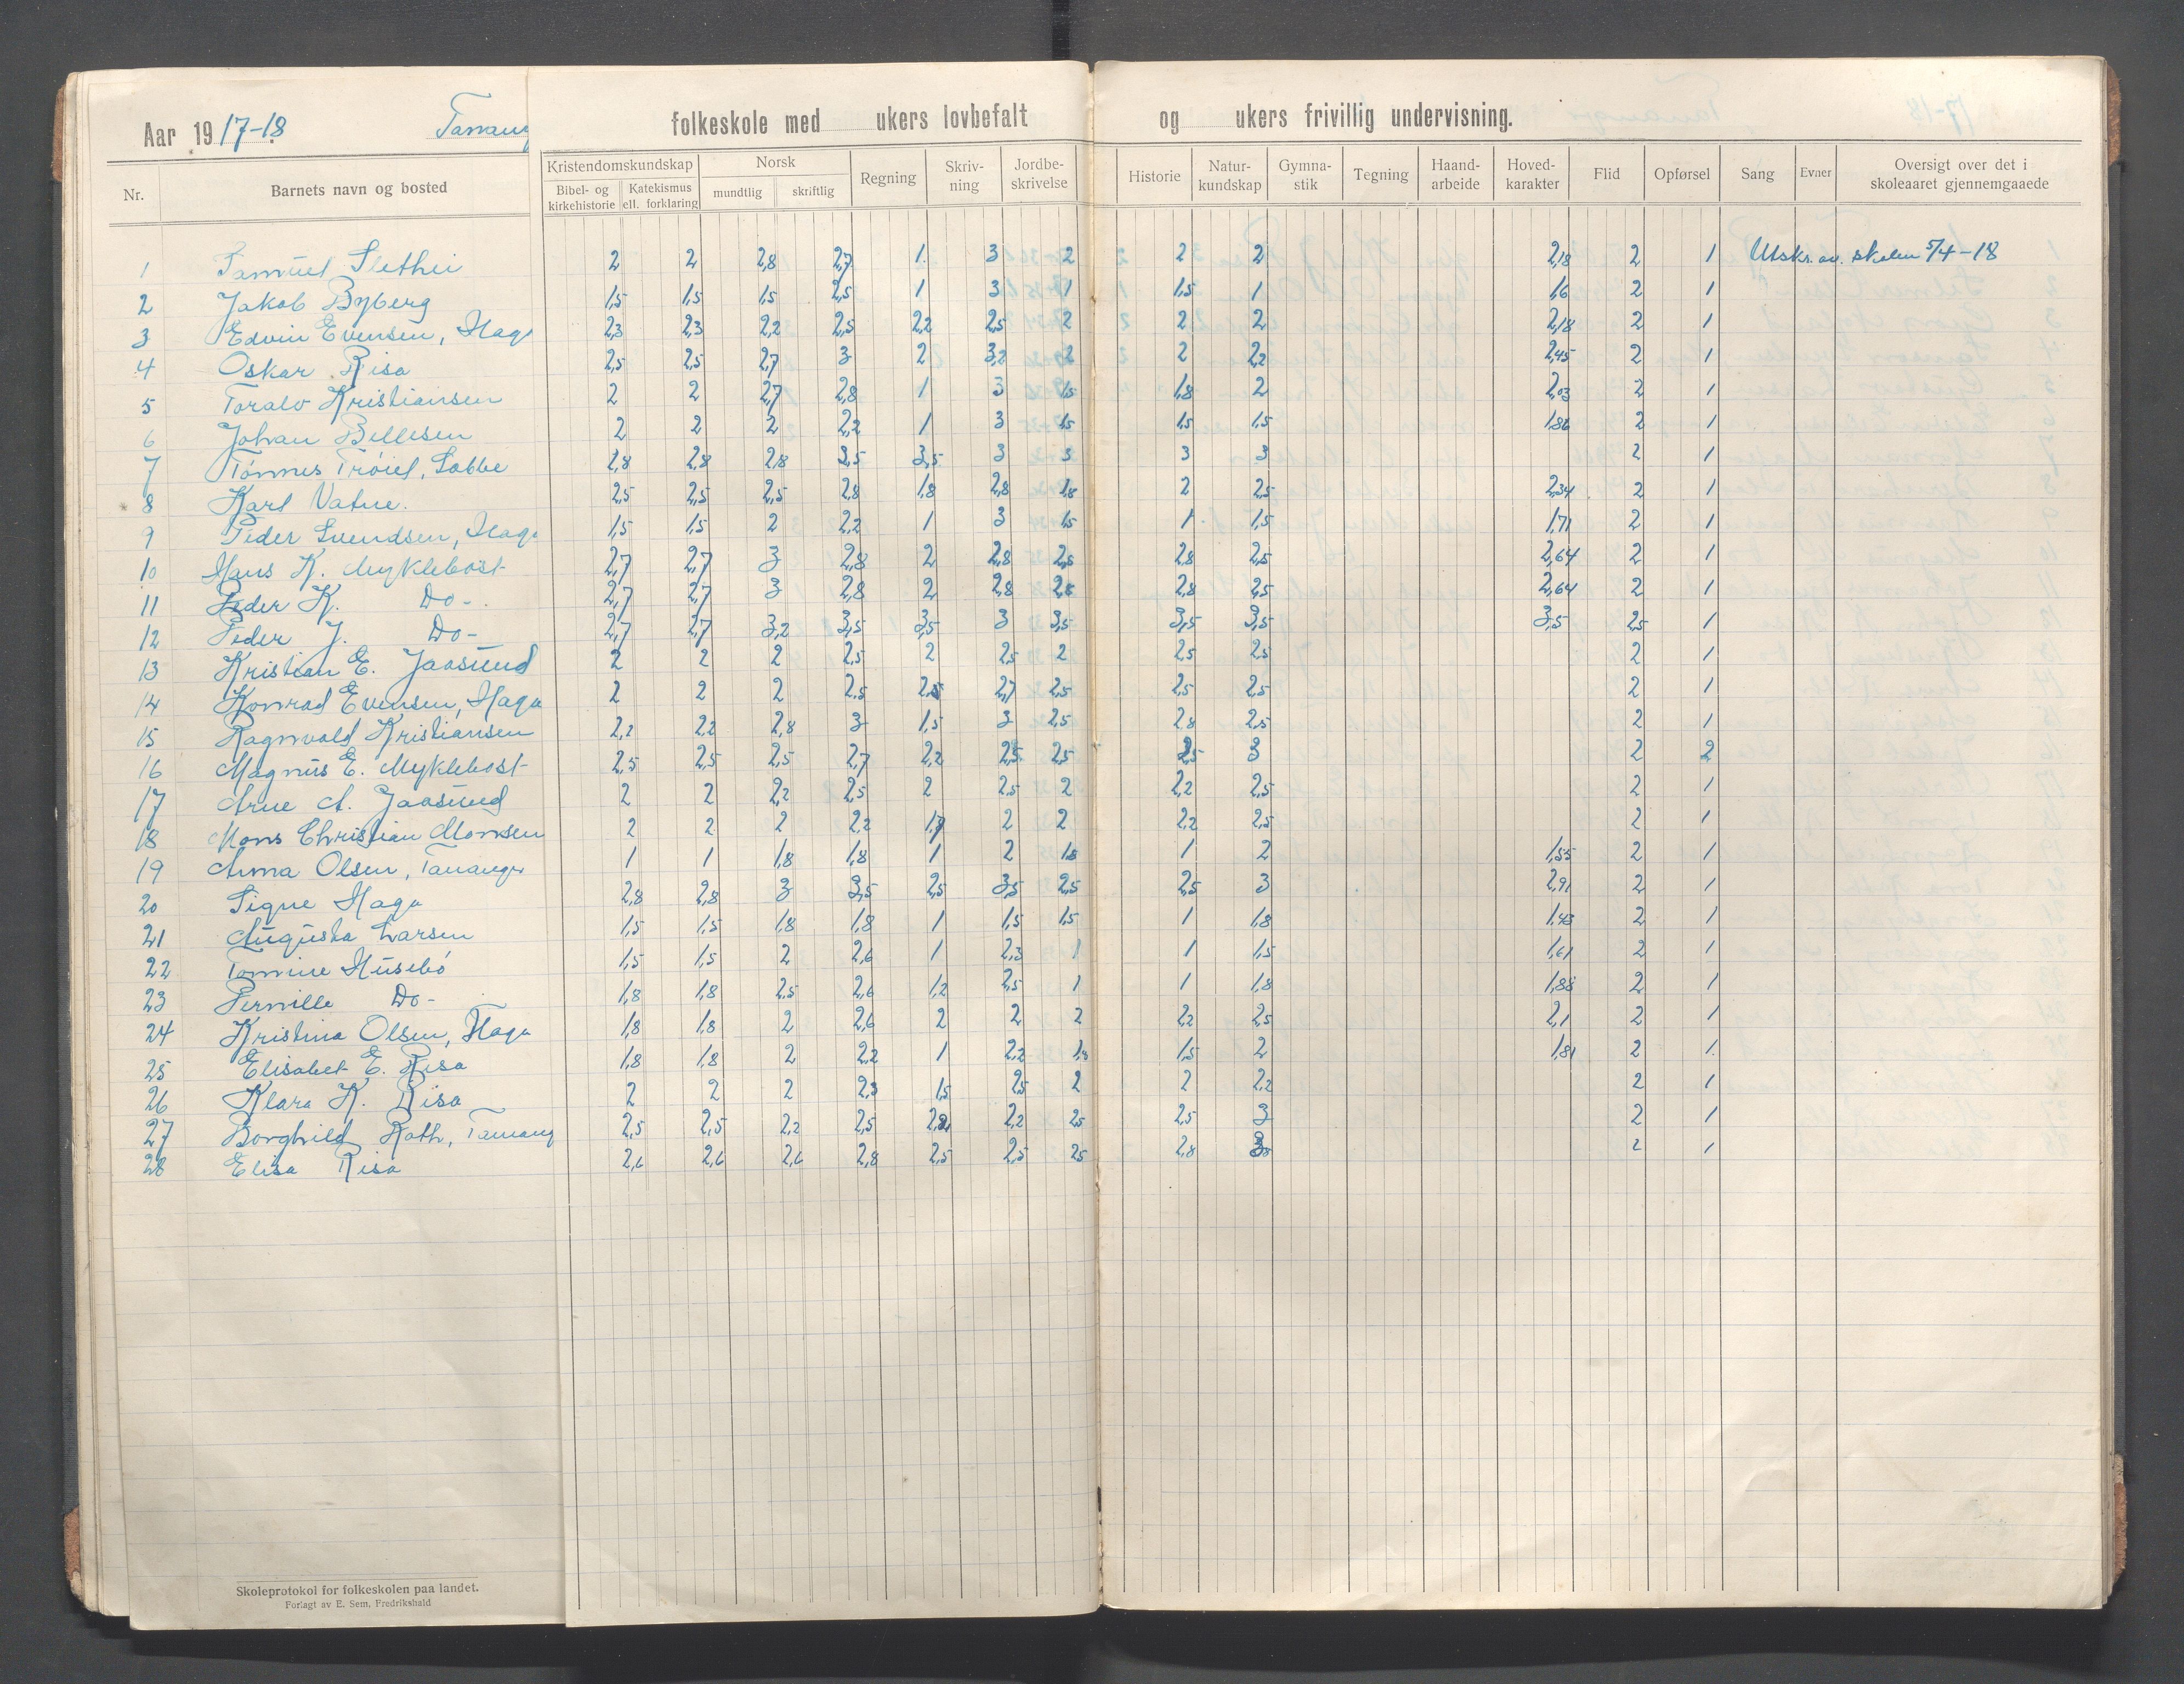 Aar 1917-18. Tanang folkeskole med ukers lovbefalt og ukers frivillig undervisning.
Nr. Barnets navn og bosted Kristendomskundskap Bibel- og kirkehistorie Katekismus ell. forklaring Norsk mundtlig skriftlig Regning Skriv-ning Jordbe-skrivelse Historie Natur-kundskap Gymna-stik Tegning Haand-arbeide Hoved-karakter Flid Opførsel Sang Evner Oversigt over det i skoleaaret gjennemgaaede
1 Samuel Slethei 2 2 2,8 2,7 1 3 2 2 2 2,18 2 1 Utskr. av. skolen 5/4-18
2 Jakob Byberg 1,5 1,5 1,5 2,5 1 3 1 1,5 1 1,6 2 1
3 Edvin Evensen, Haga 2,3 2,3 2,2 2,5 2,2 2,5 2 2 2 2,18 2 1
4 Oskar Risa 2,5 2,5 2,7 3 2 3,2 2 2 2,2 2,45 2 1
5 Toralv Kristiansen 2 2 2,7 2,8 1 3 1,5 1,8 2 2,03 2 1
6 Johan Bellesen 2 2 2 2,2 1 3 1,5 1,5 1,5 1,86 2 1
7 Tønnes Trøiel, Sabbe 2,8 2,8 2,8 3,5 3,5 3 3 3 3 2 1
8 Karl Vatne. 2,5 2,5 2,5 2,8 1,8 2,8 1,8 2 2,5 2,34 2 1
9 Peder Svendsen, Haga 1,5 1,5 2 2,2 1 3 1,5 1 1,5 1,71 2 1
10 Hans K. Myklebost 2,7 2,7 3 2,8 2 2,8 2,5 2,8 2,5 2,64 2 1
11 Peder K. Do-. 2,7 2,7 3 2,8 2 2,8 2,5 2,8 2,5 2,64 2 1
12 Peder J. Do- 2,7 2,7 3,2 3,5 3,5 3 3,5 3,5 3,5 3,5 2,5 1
13 Kristian E. Jaasund 2 2 2 2,5 2 2,5 2 2,5 2,5 2 1
14 Konrad Evensen, Haga 2 2 2 2,5 2,5 2,7 2,5 2,5 2,5 2 1
15 Ragnvald Kristiansen 2,2 2,2 2,8 3 1,5 3 2,5 2,8 2,5 2 1
16 Magnus E. Myklebost 2,5 2,5 2,5 2,7 2,2 2,5 2,5 2,5 3 2 2
17 Arne A. Jaasund 2 2 2,2 2,5 2 2,5 2 2,2 2,5 2 1
18 Mons Christian Monsen 2 2 2 2,2 1,7 2 2 2,2 2,5 2 1
19 Anna Olsen, Tananger 1 1 1,8 1,8 1 2 1,8 1 2 1,55 2 1
20 Signe Haga 2,8 2,8 3 3,5 2,5 3,5 2,5 2,5 3 2,91 2 1
21 Augusta Larsen 1,5 1,5 1,8 1,8 1 1,5 1,5 1 1,8 1,43 2 1
22 Tomine Husebø 1,5 1,5 2 2,6 1 2,3 1 1 1,5 1,61 2 1
23 Pernille Do- 1,8 1,8 2,5 2,6 1,2 2,5 1 1 1,8 1,88 2 1
24 Kristina Olsen, Haga 1,8 1,8 2 2,6 2 2 2 2,2 2,5 2,1 2 1
25 Elisabet E. Risa 1,8 1,8 2 2,2 1 2,2 1,8 1,5 2 1,81 2 1
26 Klara K. Risa 2 2 2 2,3 1,5 2,5 2 2 2,2 2 1
27 Borghild Roth, Tanang 2,5 2,5 2,2 2,5 2,2 2,2 2,5 2,5 3 2 1
28 Elisa Risa 2,6 2,6 2,6 2,8 2,5 2,5 2,5 2,8 3 2 1
Skoleprotokol for folkeskolen paa landet.
Forlagt av E. Sem, Fredrikshald